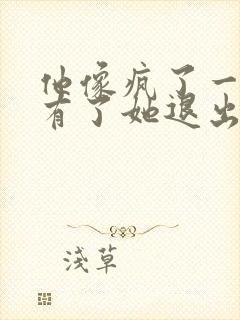 他像疯了一
有了她退出
浅草